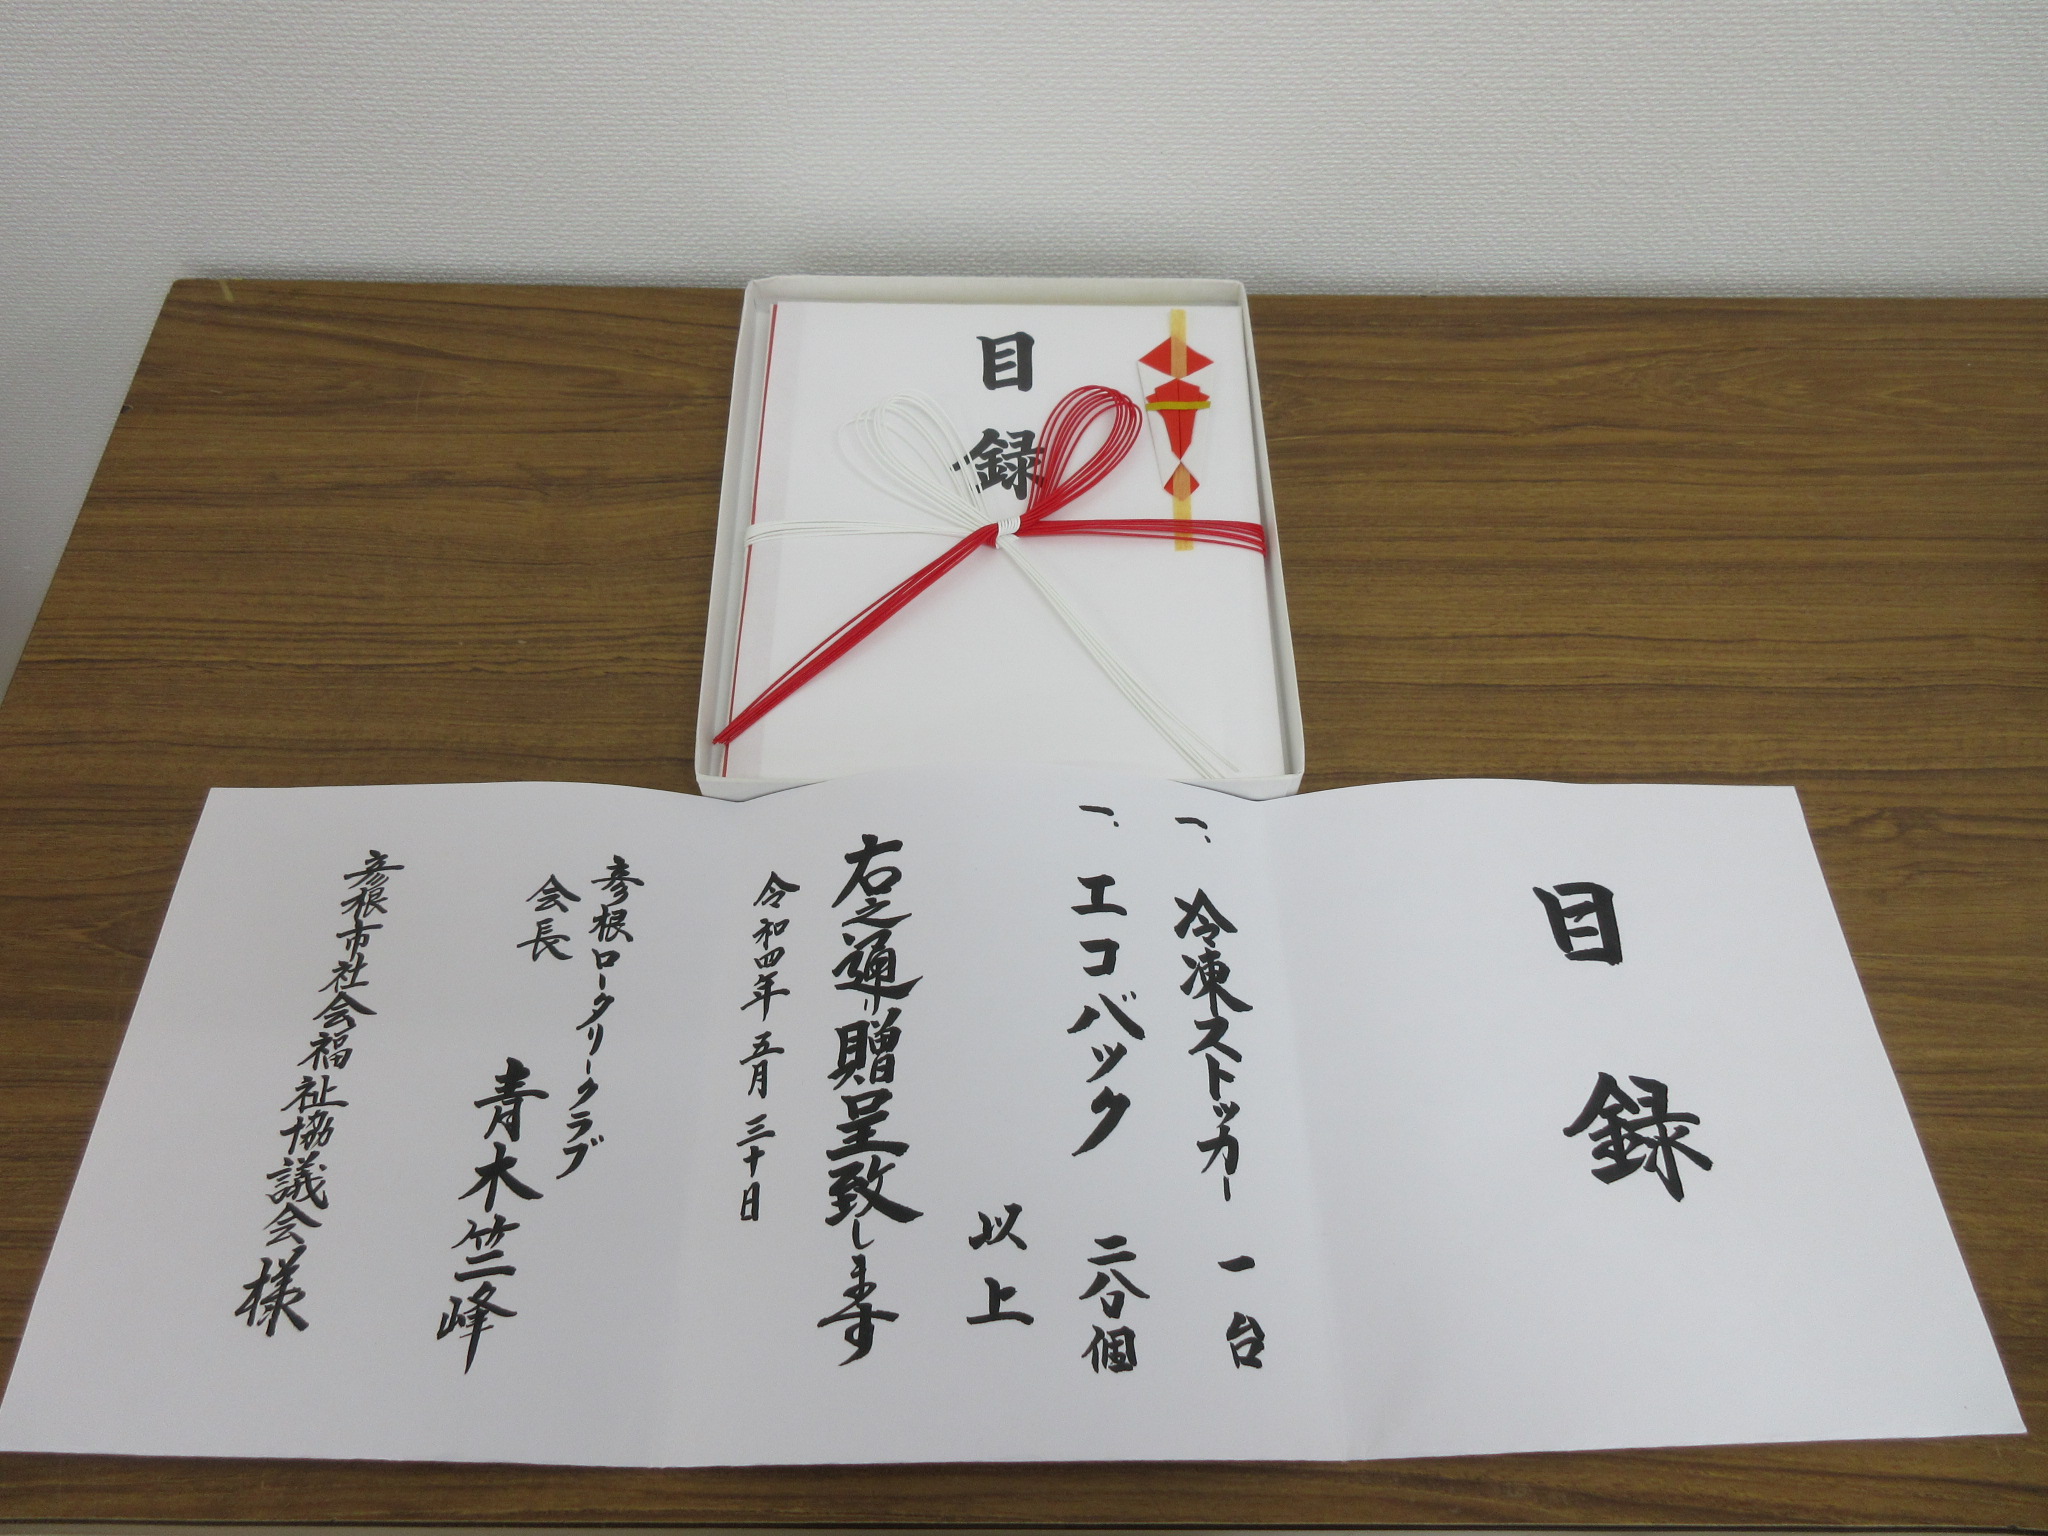 目録
目録
一、冷凍ストッカー 一台
一、エコバック 二八〇個
以上
右之通り贈呈致します
令和四年五月三十日
彦根ロータリークラブ
会長 青木竺峰
彦根市社会福祉協議会様